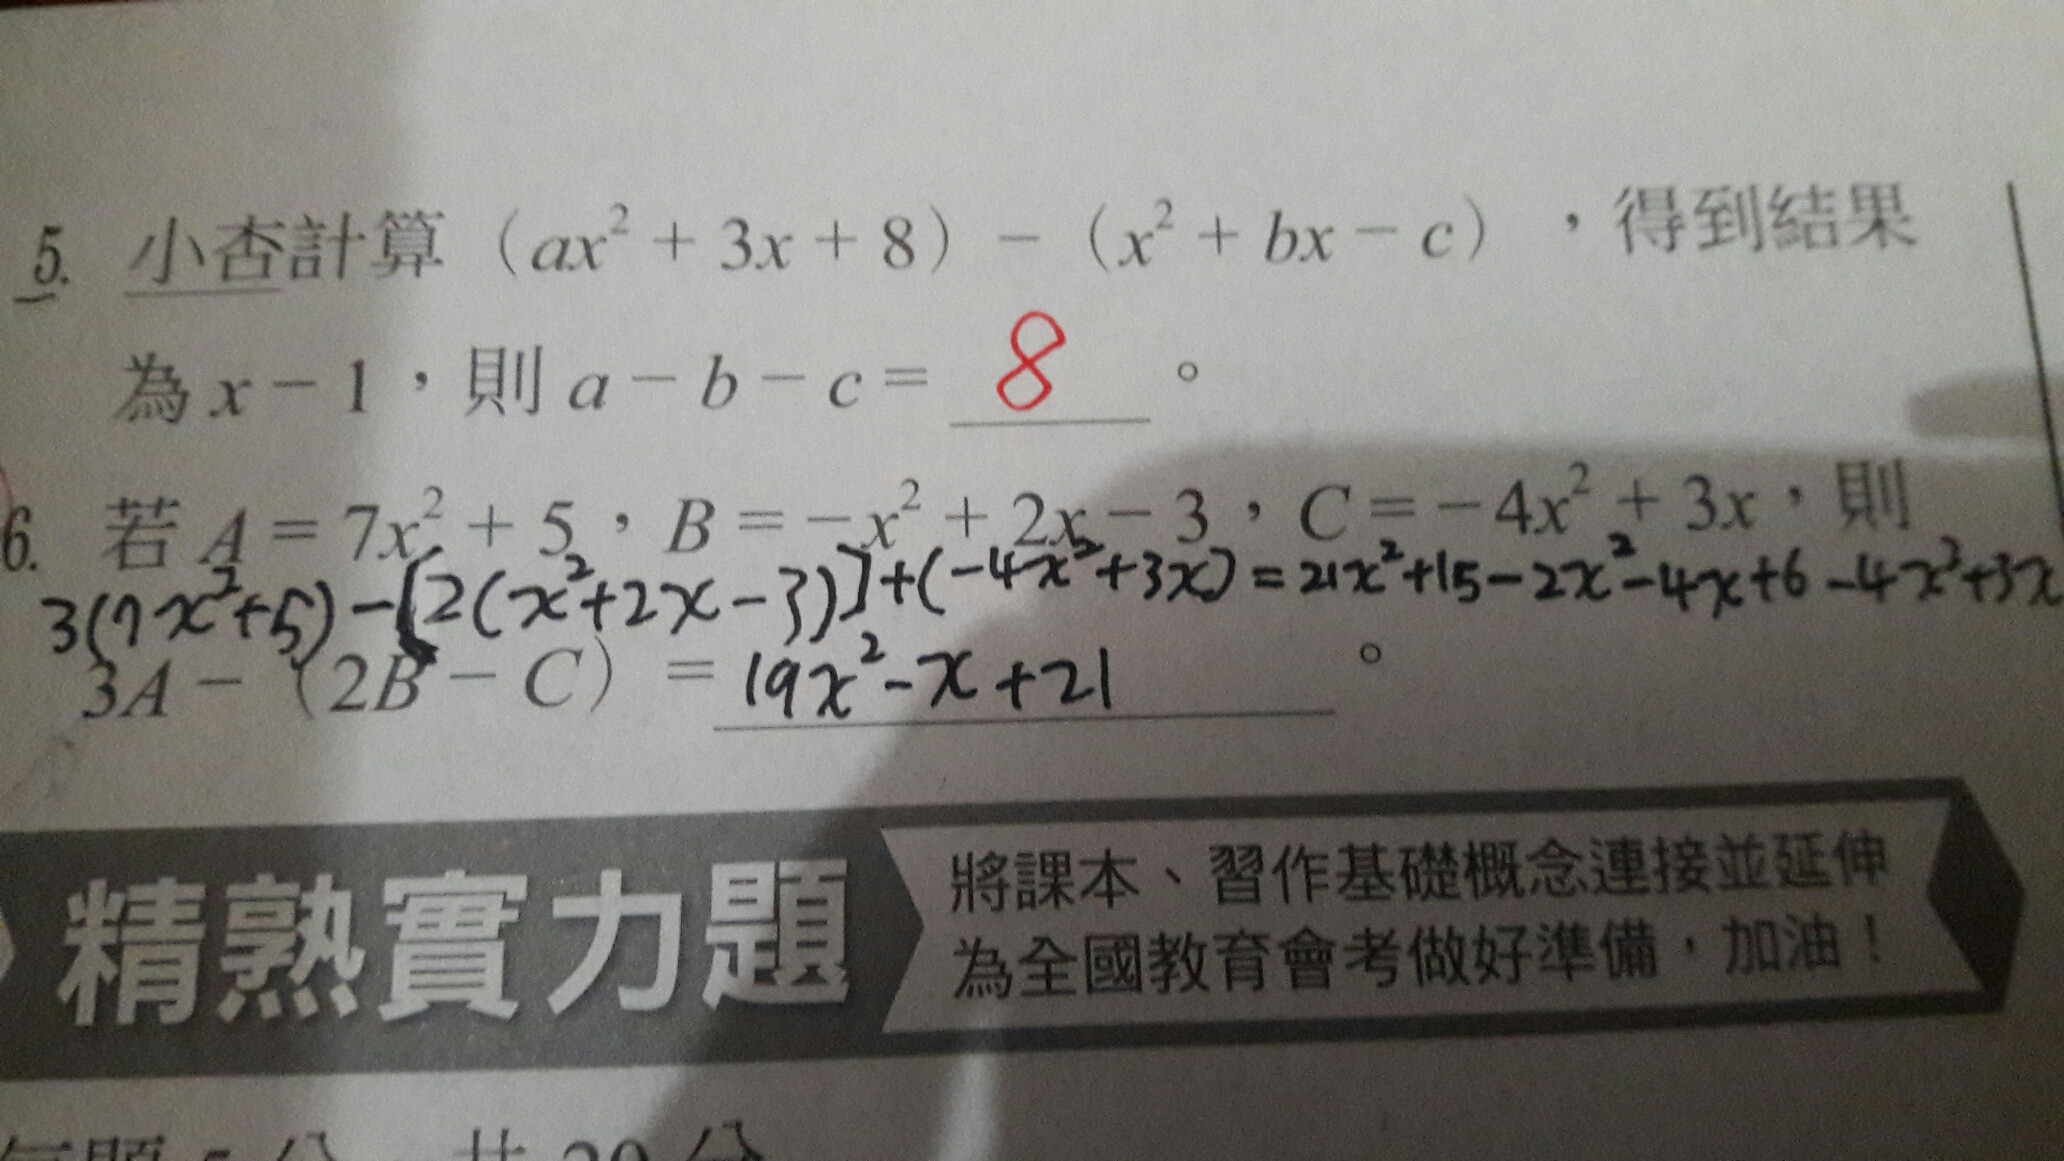 5. 小杏計算（ax²+3x+8）-（x²+bx-c），得到結果
為x-1，則a-b-c= 8 。
6. 若A=7x²+5，B=-x²+2x-3，C=-4x²+3x，則
3(7x²+5)-[2(x²+2x-3)]+(-4x²+3x)=21x²+15-2x²-4x+6-4x²+3x
3A-（2B-C）= 19x²-x+21 。
精熟實力題
將課本、習作基礎概念連接並延伸
為全國教育會考做好準備，加油！